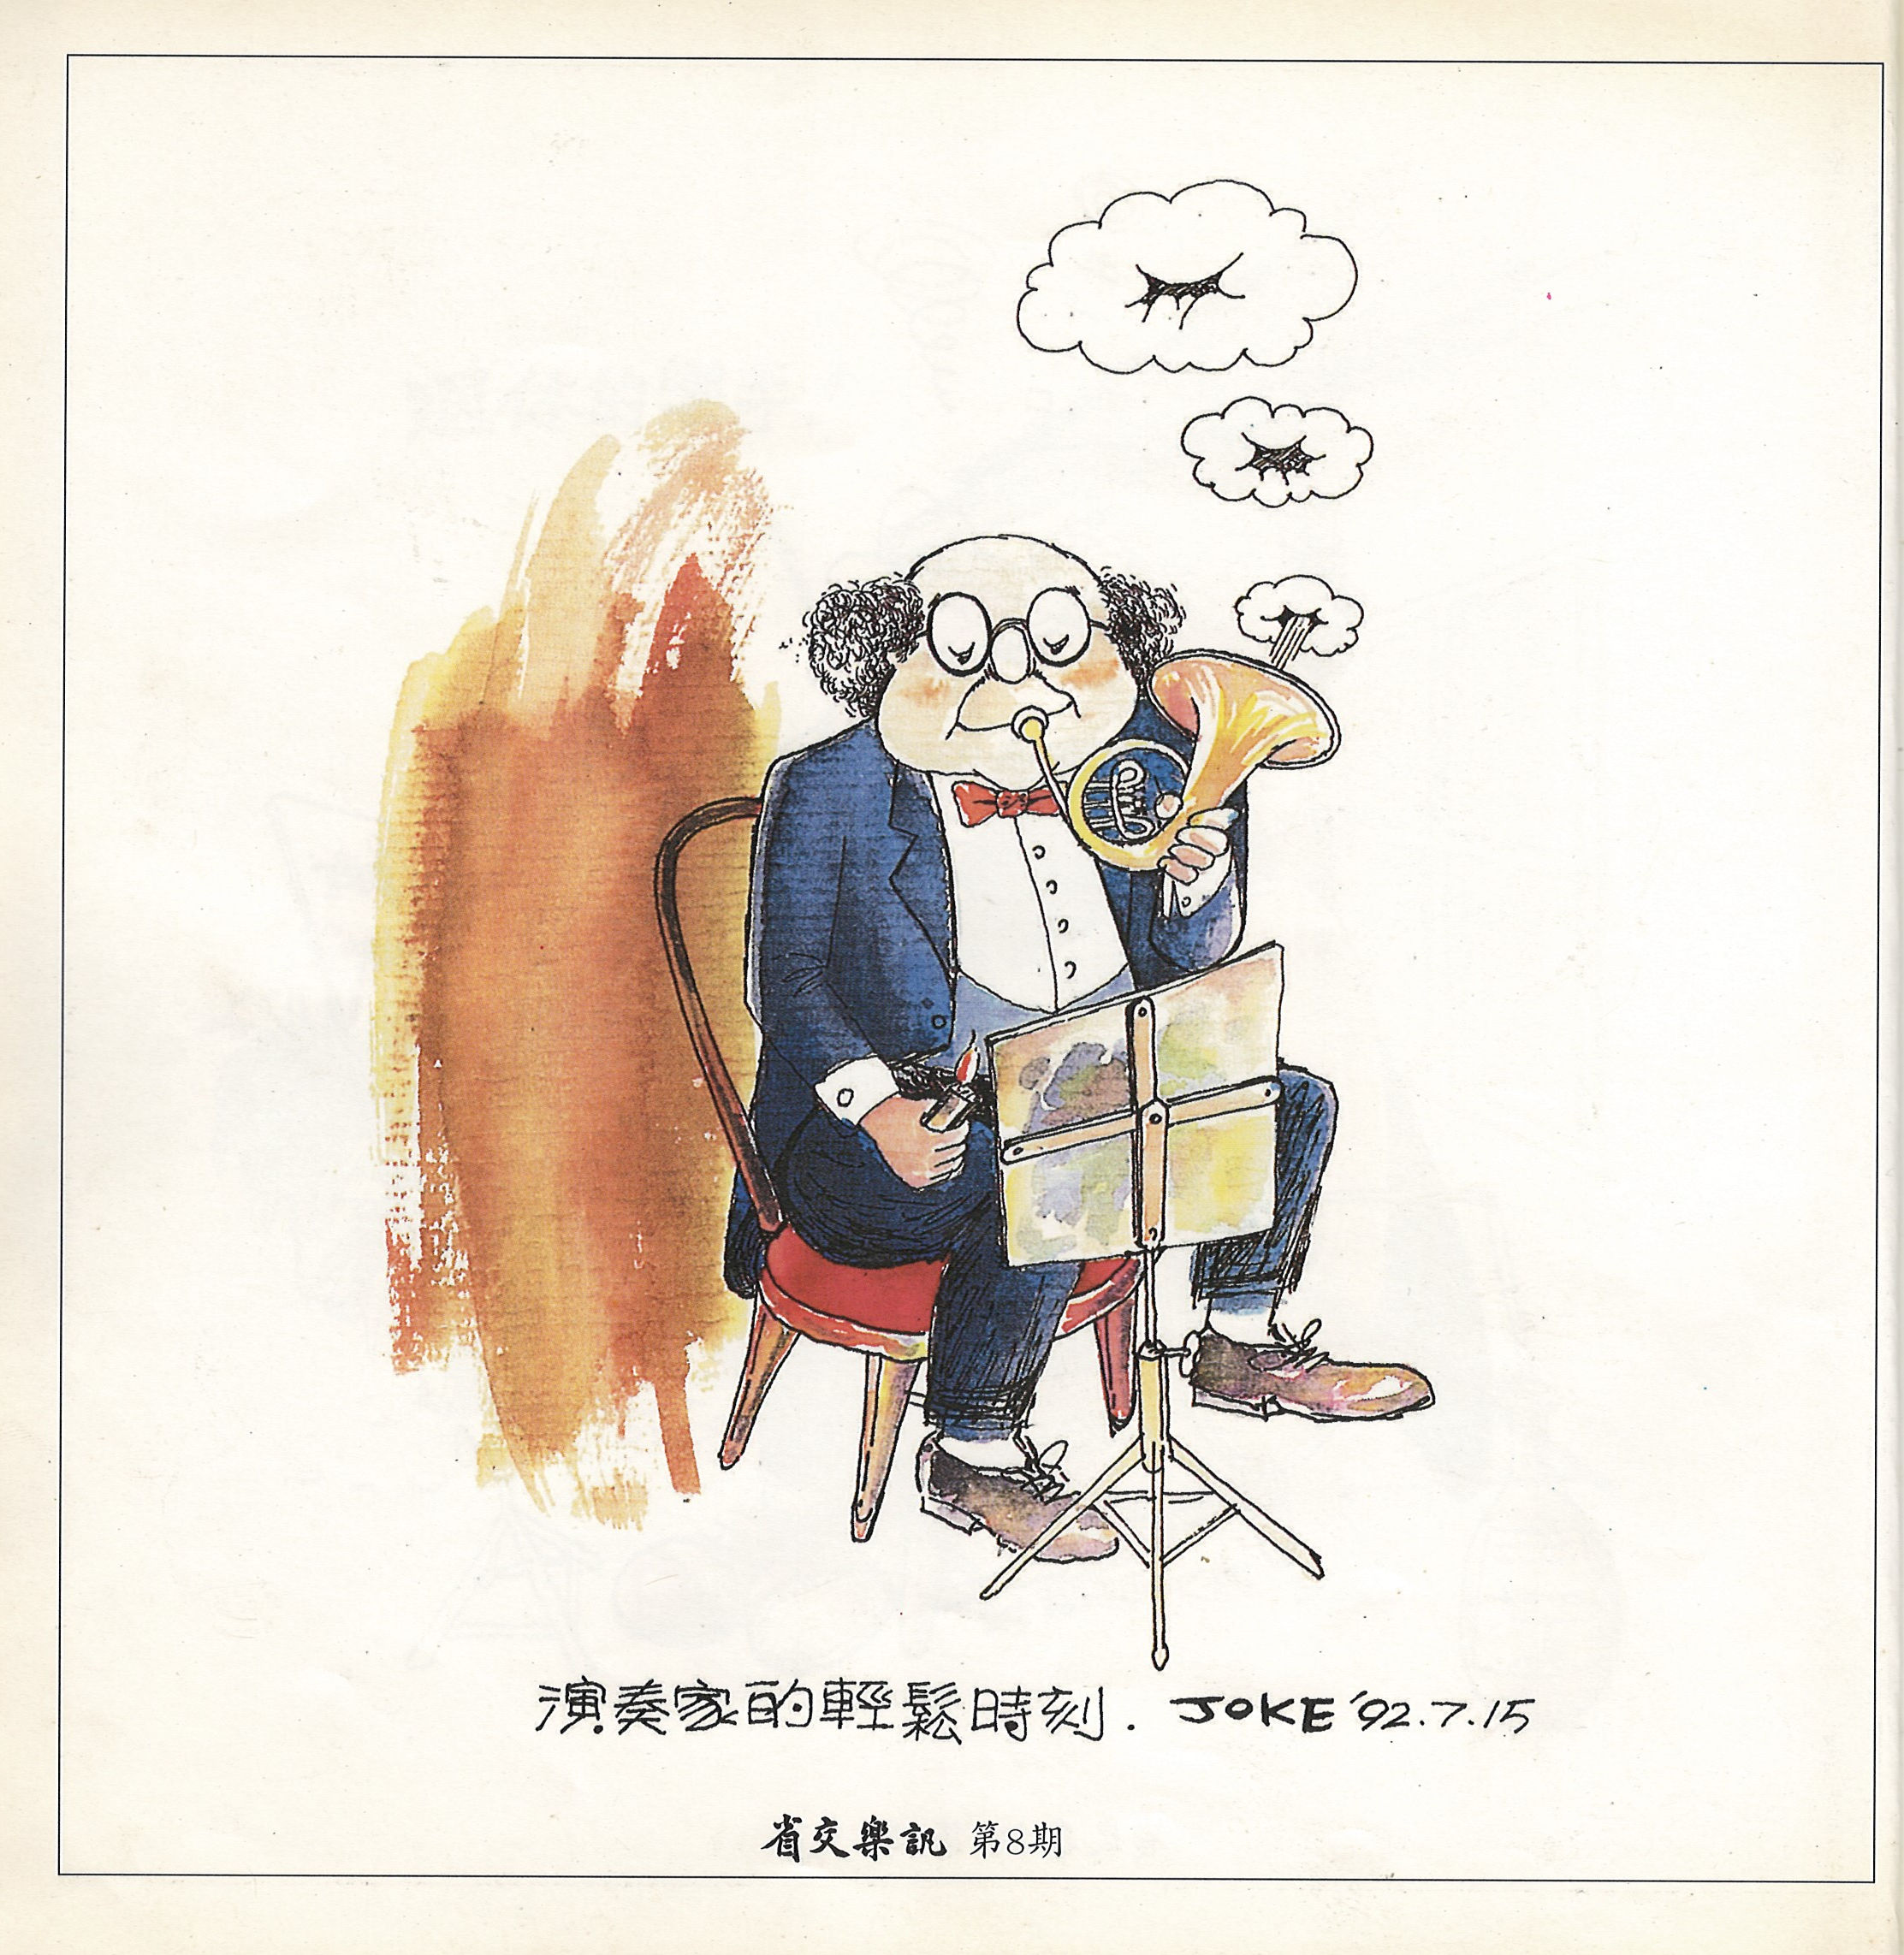 演奏家的輕鬆時刻. JOKE '92.7.15
省交樂訊 第8期